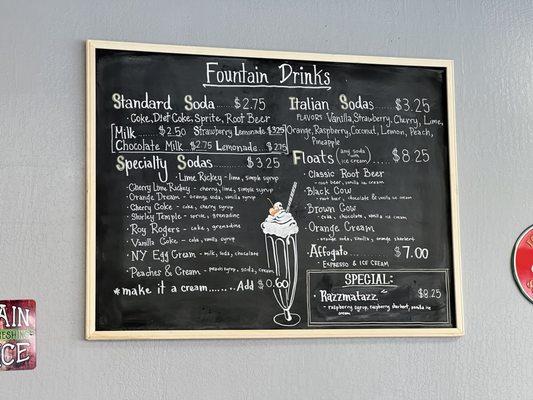 Fountain Drinks
Standard Soda......$2.75
Coke, Diet Coke, Sprite, Root Beer
Milk.......$2.50 Strawberry Lemonade $3.25
Chocolate Milk $2.75 Lemonade... $2.75
Specialty Sodas........$3.25
· Lime Rickey - lime, simple syrup
· Cherry Lime Rickey - cherry, lime, simple syrup
· Orange Dream - orange soda, vanilla syrup
· Cherry Coke - coke, cherry syrup
· Shirley Temple - sprite, grenadine
· Roy Rogers - coke, grenadine
· Vanilla Coke - coke, vanilla syrup
· NY Egg Cream - milk, soda, chocolate
· Peaches & Cream - peach syrup, soda, cream
*make it a cream....... Add $0.60
Italian Sodas......$3.25
FLAVORS Vanilla, Strawberry, Cherry, Lime,
Orange, Raspberry, Coconut, Lemon, Peach,
Pineapple
Floats (any soda with ice cream)....$8.25
· Classic Root Beer
- root beer, vanilla ice cream
· Black Cow
- root beer, chocolate & vanilla ice cream
· Brown Cow
- coke, chocolate, vanilla ice cream
· Orange Cream
- orange soda, vanilla, orange sherbert
· Affogato..........$7.00
- Espresso & ICE CREAM
SPECIAL:
· Razzmatazz $8.25
- raspberry syrup, raspberry sherbert, vanilla ice
cream
AIN
RESHING
CE